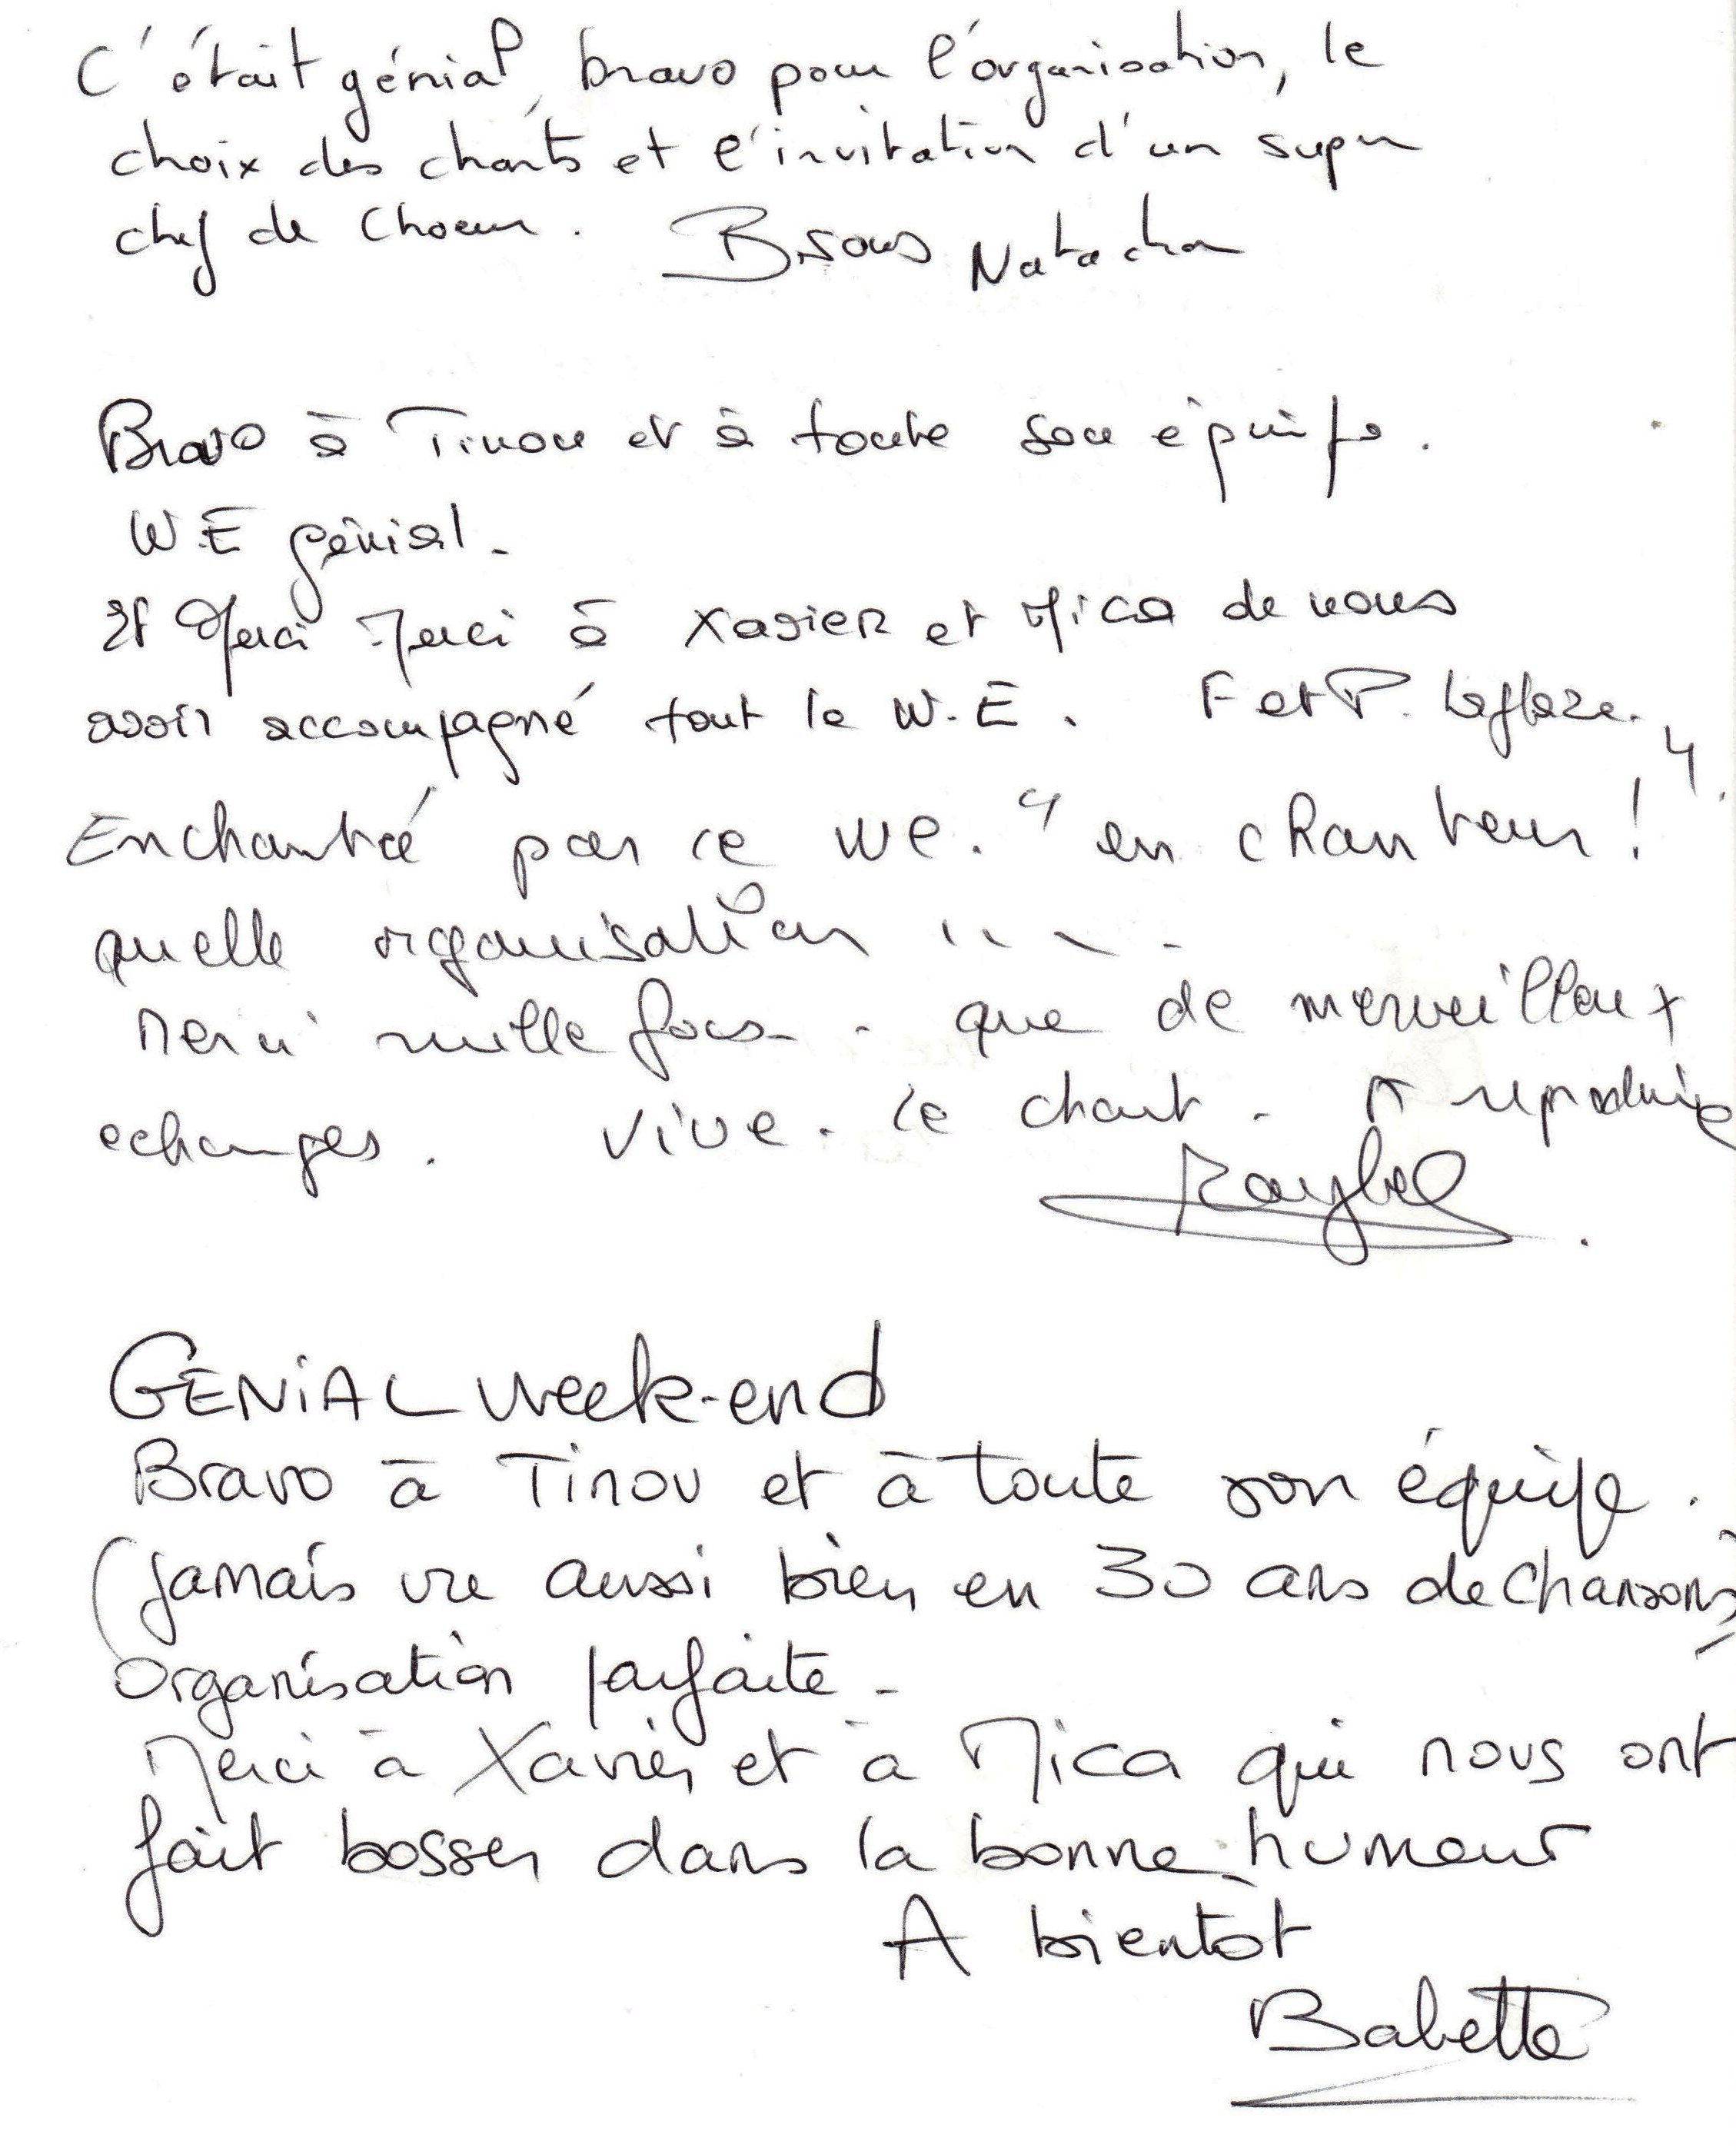 C'était génial, bravo pour l'organisation, le
choix des chants et l'invitation d'un super
chef de Choeur. Bisous Natacha
Bravo à Tinou et à toute son équipe.
W.E génial.
Et Merci Merci à Xavier et Mica de nous
avoir accompagné tout le W.E. F et P.
Enchantée par ce we. "en chanteur!"
quelle organisation ....
Merci mille fois - que de merveilleux
echanges. Vive. le chant - A reproduire
GENiAL week-end
Bravo à Tinou et à toute son équipe.
(jamais vu aussi bien en 30 ans de chansons)
Organisation parfaite -
Merci à Xavier et à Mica qui nous ont
fait bosser dans la bonne humeur
A bientôt
Babette